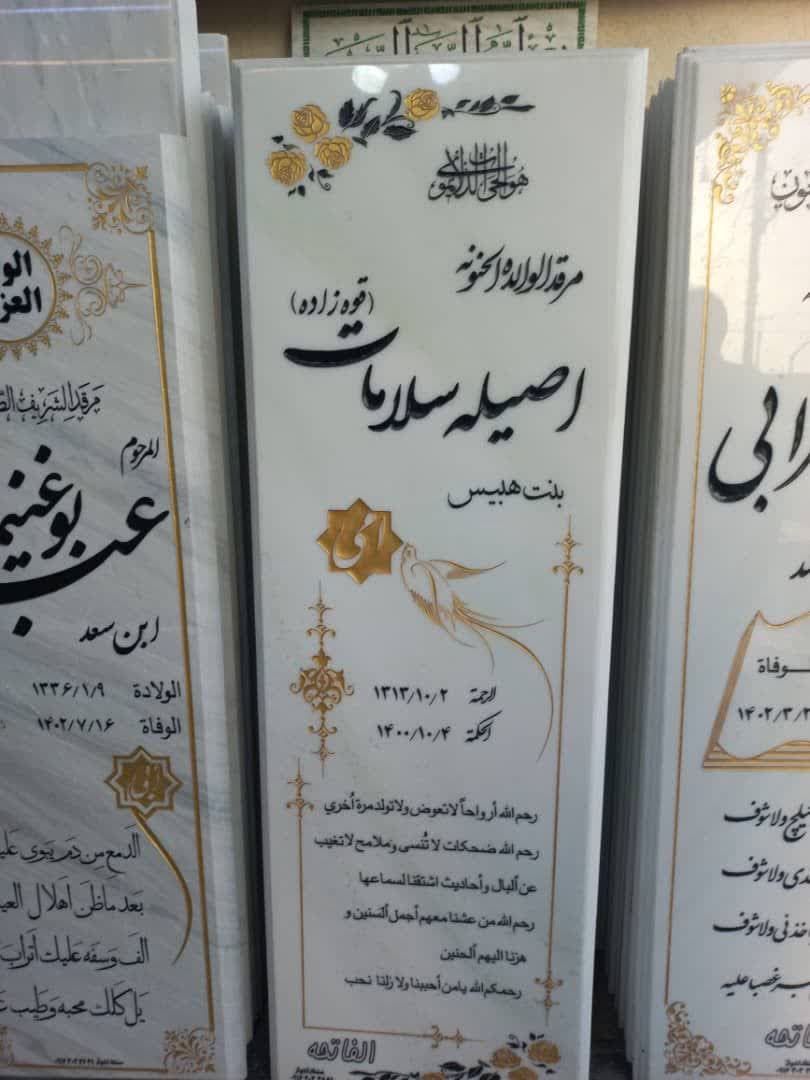 هو الحي الذي لا يموت
مرقد الوالده الحنونه
(قوه زاده)
اصيله سلامات
بنت هبيس
امي
الرحمة ۱۳۱۳/۱۰/۲
الحكمة ۱۴۰۰/۱۰/۴
رحم الله أرواحاً لا تعوض ولا تولد مرة أخري
رحم الله ضحكات لا تُنسى وملامح لا تغيب
عن ألبال وأحاديث اشتقنا لسماعها
رحم الله من عشنا معهم أجمل ألسنين و
هزنا اليهم ألحنين
رحمكم الله يا من أحببنا ولا زلنا نحب
الفاتحه
المرحوم
ابن سعد
الولادة ۱۳۳۶/۱/۹
الوفاة ۱۴۰۲/۷/۱۶
ألدمع من دم يهوى
بعد ماظن اهلال
الف وسفه عليك أتراب
يل كلك محبه وطيب
الوفاة
۱۴۰۲/۳/۲
ولاشوف
ولاشوف
ولاشوف
غصبا عليه